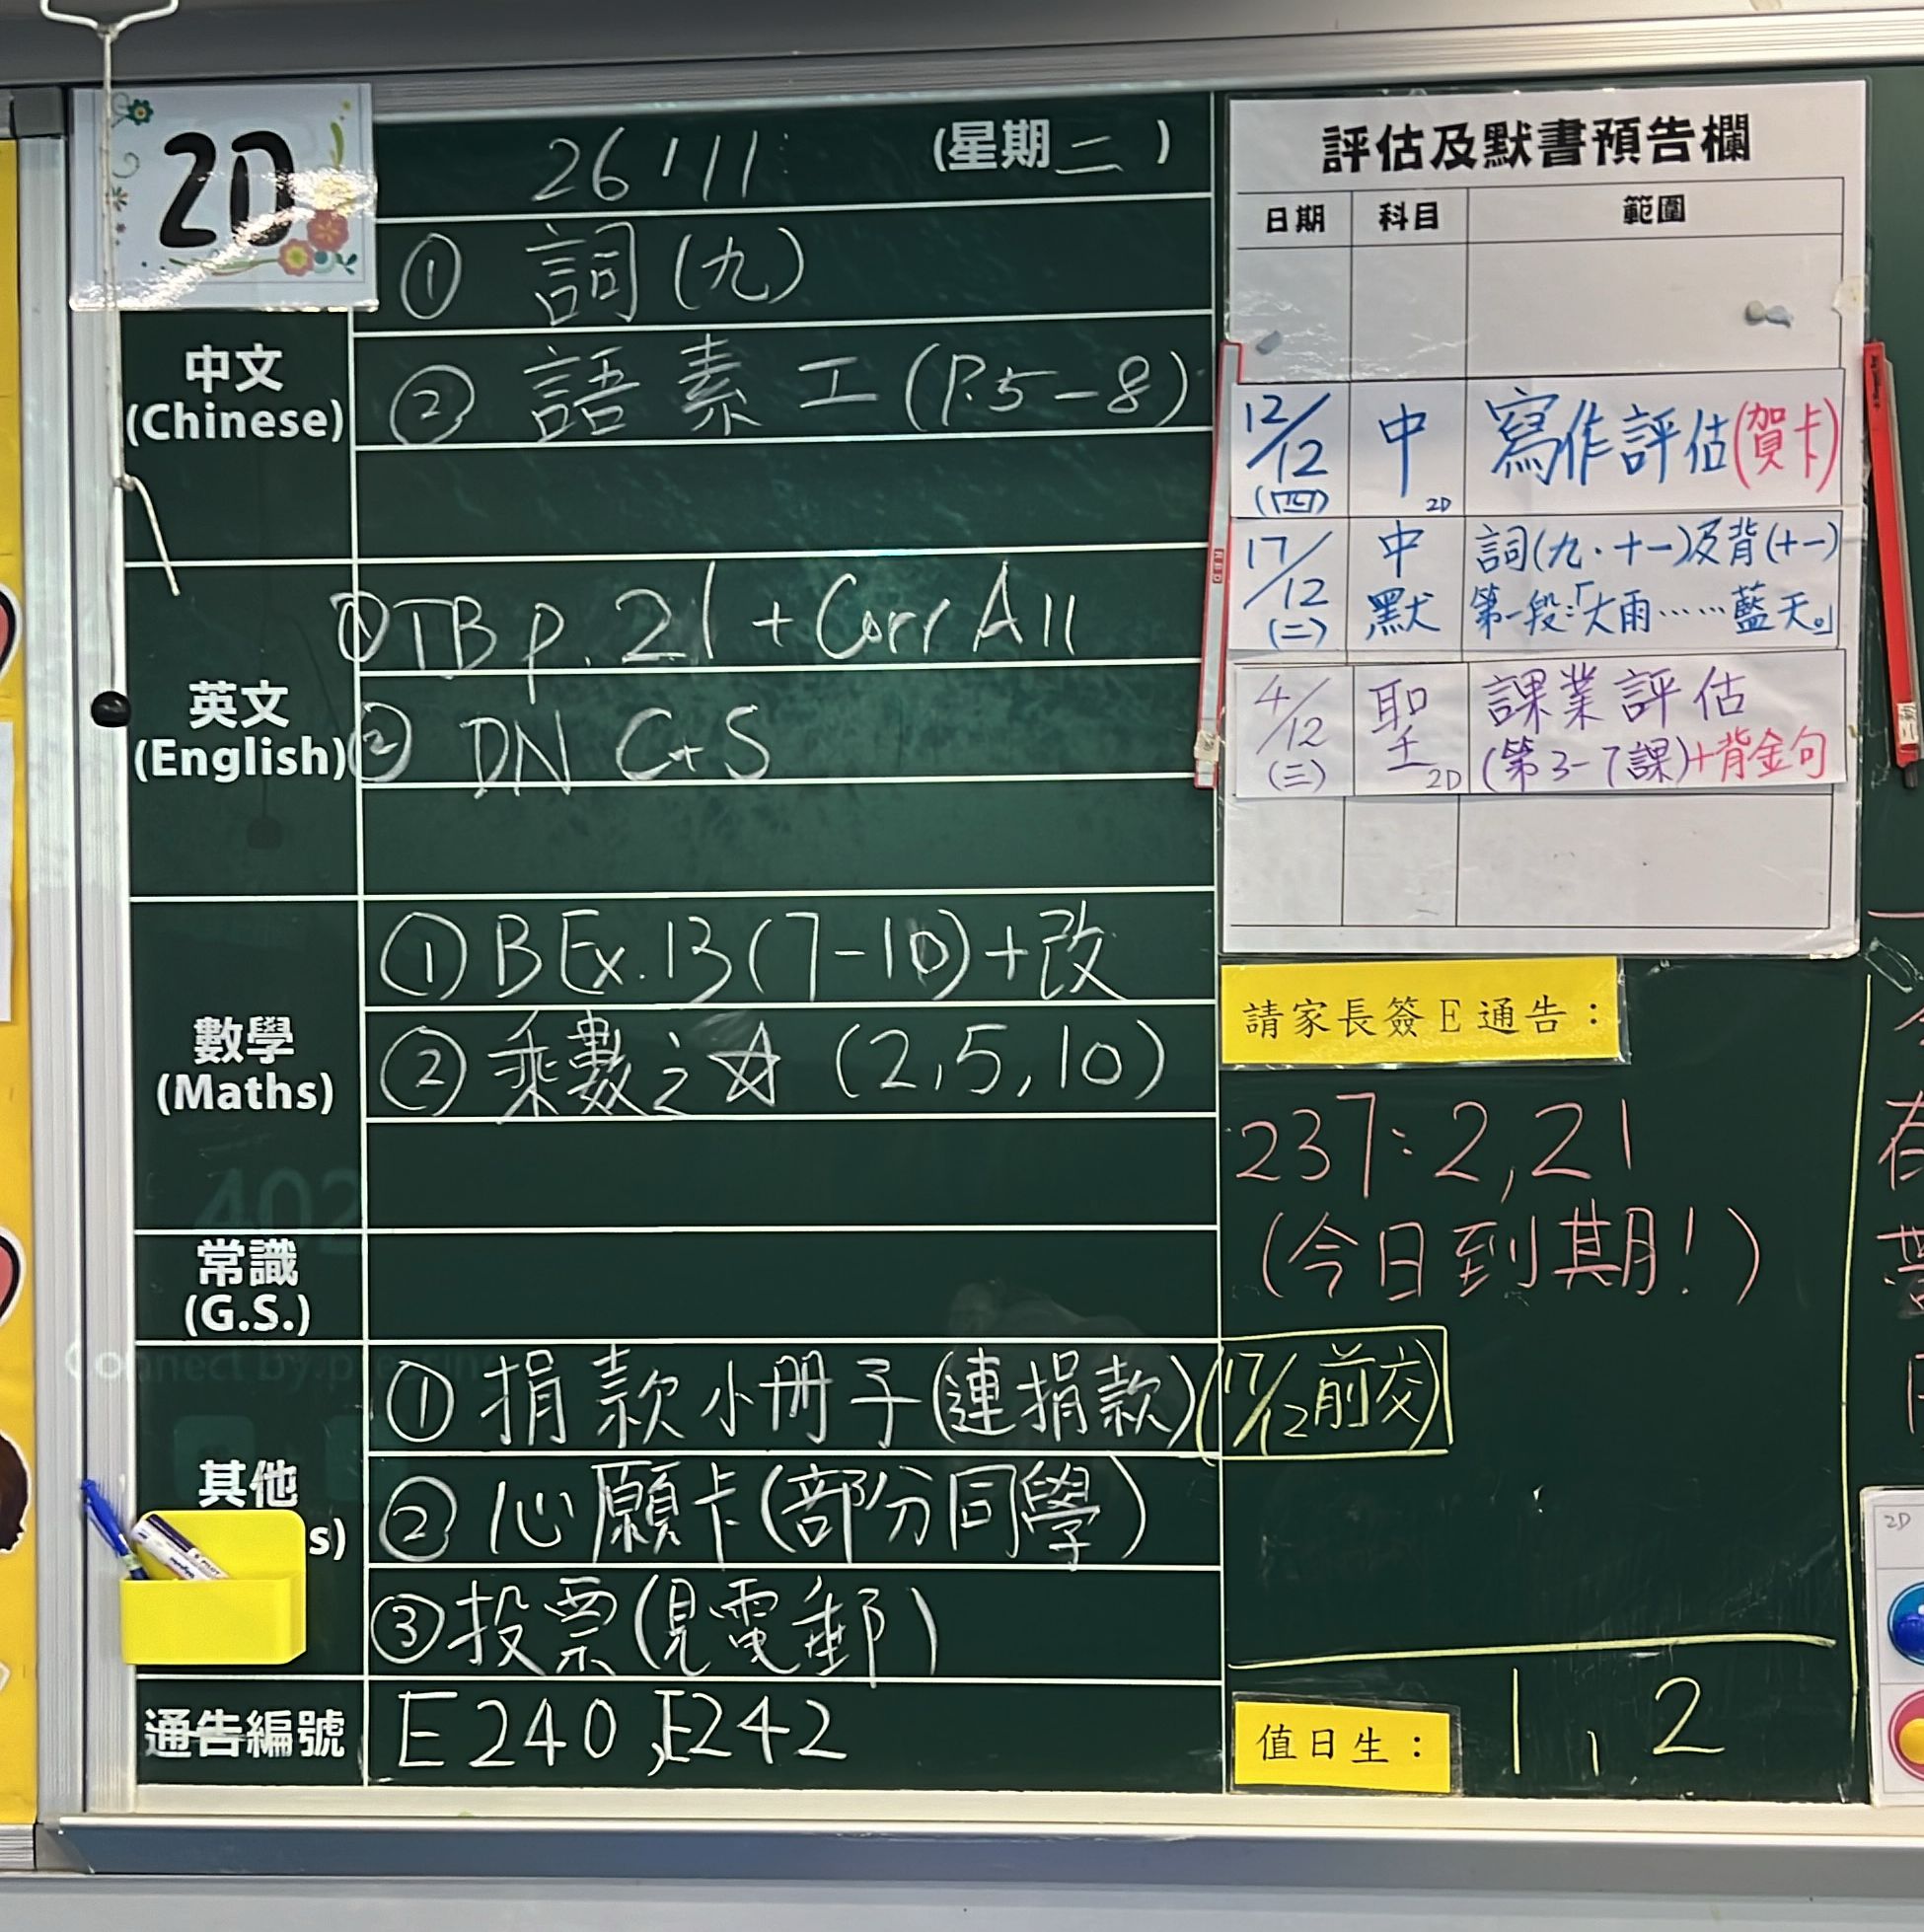 2D
26/11 (星期二)
① 詞(九)
中文
(Chinese)
② 語素工(P.5-8)
① TB p.21 + Corr All
英文
(English)
② DN C+S
① BEx.13(7-10)+改
數學
(Maths)
② 乘數之☆ (2,5,10)
常識
(G.S.)
① 捐款小冊子(連捐款)(17/12前交)
其他
s)
② 心願卡(部分同學)
③ 投票(見電郵)
通告編號
E240,E242
評估及默書預告欄
日期 科目 範圍
12/12 (四) 中 2D 寫作評估(賀卡)
17/12 (二) 中默 詞(九·十一)及背(十一)
第一段:「大雨……藍天。」
4/12 (三) 聖 2D 課業評估
(第3-7課)+背金句
請家長簽E通告:
237:2,21
(今日到期!)
值日生: 1,2
2D